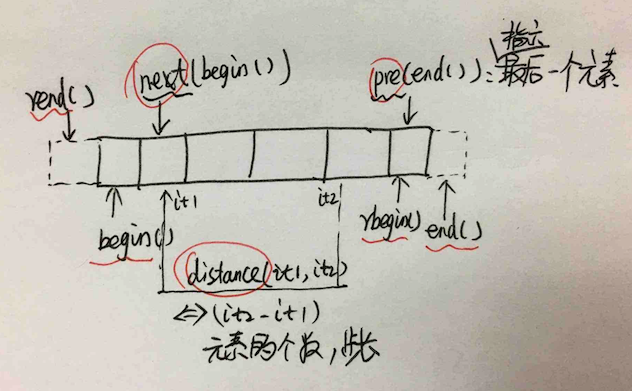 指示
rend()
next(begin())
pre(end()):最后一个元素
it1
it2
begin()
rbegin()
end()
distance(it1,it2)
<=>(it2-it1)
元素的个数,步长